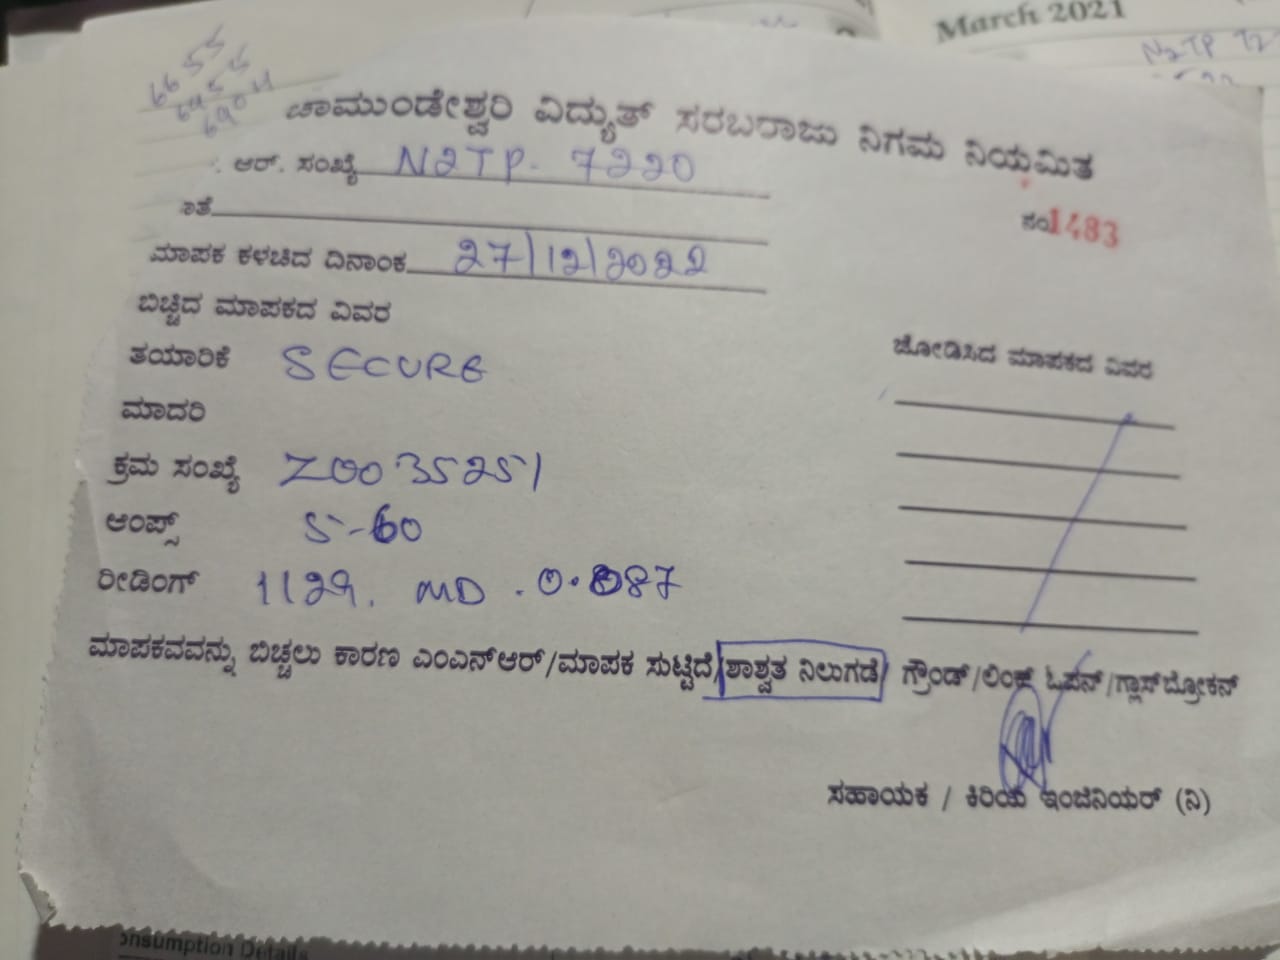 March 2021
N2TP
6655
6955
6904
ಚಾಮುಂಡೇಶ್ವರಿ ವಿದ್ಯುತ್ ಸರಬರಾಜು ನಿಗಮ ನಿಯಮಿತ
ಆರ್. ಸಂಖ್ಯೆ N2TP- 7220
ನಂ 1483
ಮಾಪಕ ಕಳಚಿದ ದಿನಾಂಕ 27/12/2022
ಬಿಚ್ಚಿದ ಮಾಪಕದ ವಿವರ
ಜೋಡಿಸಿದ ಮಾಪಕದ ವಿವರ
ತಯಾರಿಕೆ SECURE
ಮಾದರಿ
ಕ್ರಮ ಸಂಖ್ಯೆ Z0035251
ಆಂಪ್ಸ್ 5-60
ರೀಡಿಂಗ್ 1129. MD . 0.087
ಮಾಪಕವವನ್ನು ಬಿಚ್ಚಲು ಕಾರಣ ಎಂಎನ್ಆರ್/ಮಾಪಕ ಸುಟ್ಟಿದೆ/ಶಾಶ್ವತ ನಿಲುಗಡೆ/ ಗ್ರೌಂಡ್/ಲಿಂಕ್ ಓಪನ್/ಗ್ಲಾಸ್‌ಬ್ರೋಕನ್
ಸಹಾಯಕ / ಕಿರಿಯ ಇಂಜಿನಿಯರ್ (ನಿ)
onsumption Details